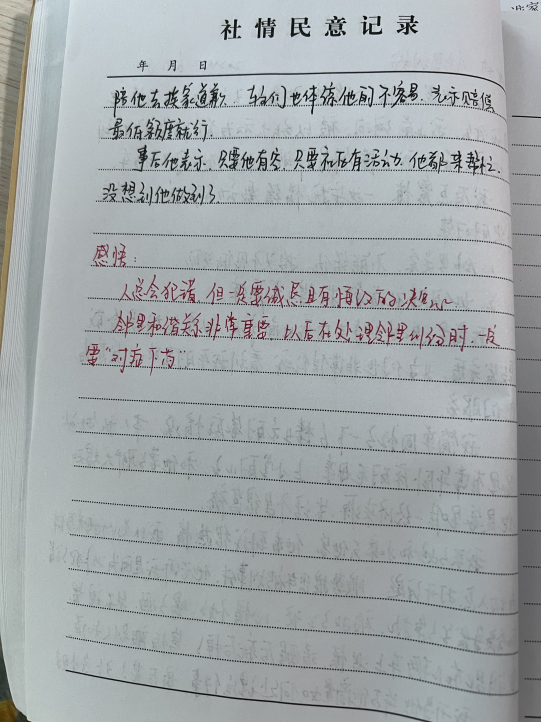 社情民意记录
年 月 日
陪他去挨家道歉. 车主们也体谅他的不容易. 表示赔偿
最低额度就行.
事后他表示. 只要他有空. 只要社区有活动. 他都来帮忙.
没想到他做到了
感悟:
人总会犯错. 但一定要诚恳且有悔改的决心.
邻里和谐关系非常重要. 以后在处理邻里纠纷时. 一定
要“对症下药”